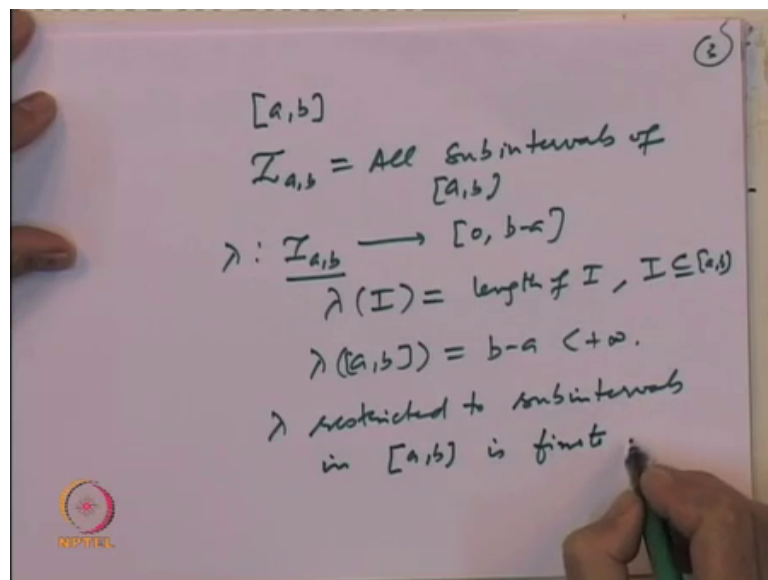 3
[a,b]
I_{a,b} = All subintervals of
[a,b]
λ : I_{a,b} ⟶ [0, b-a]
λ(I) = length of I, I ⊆ [a,b]
λ([a,b]) = b-a < +∞.
λ restricted to subintervals
in [a,b] is finite
NPTEL